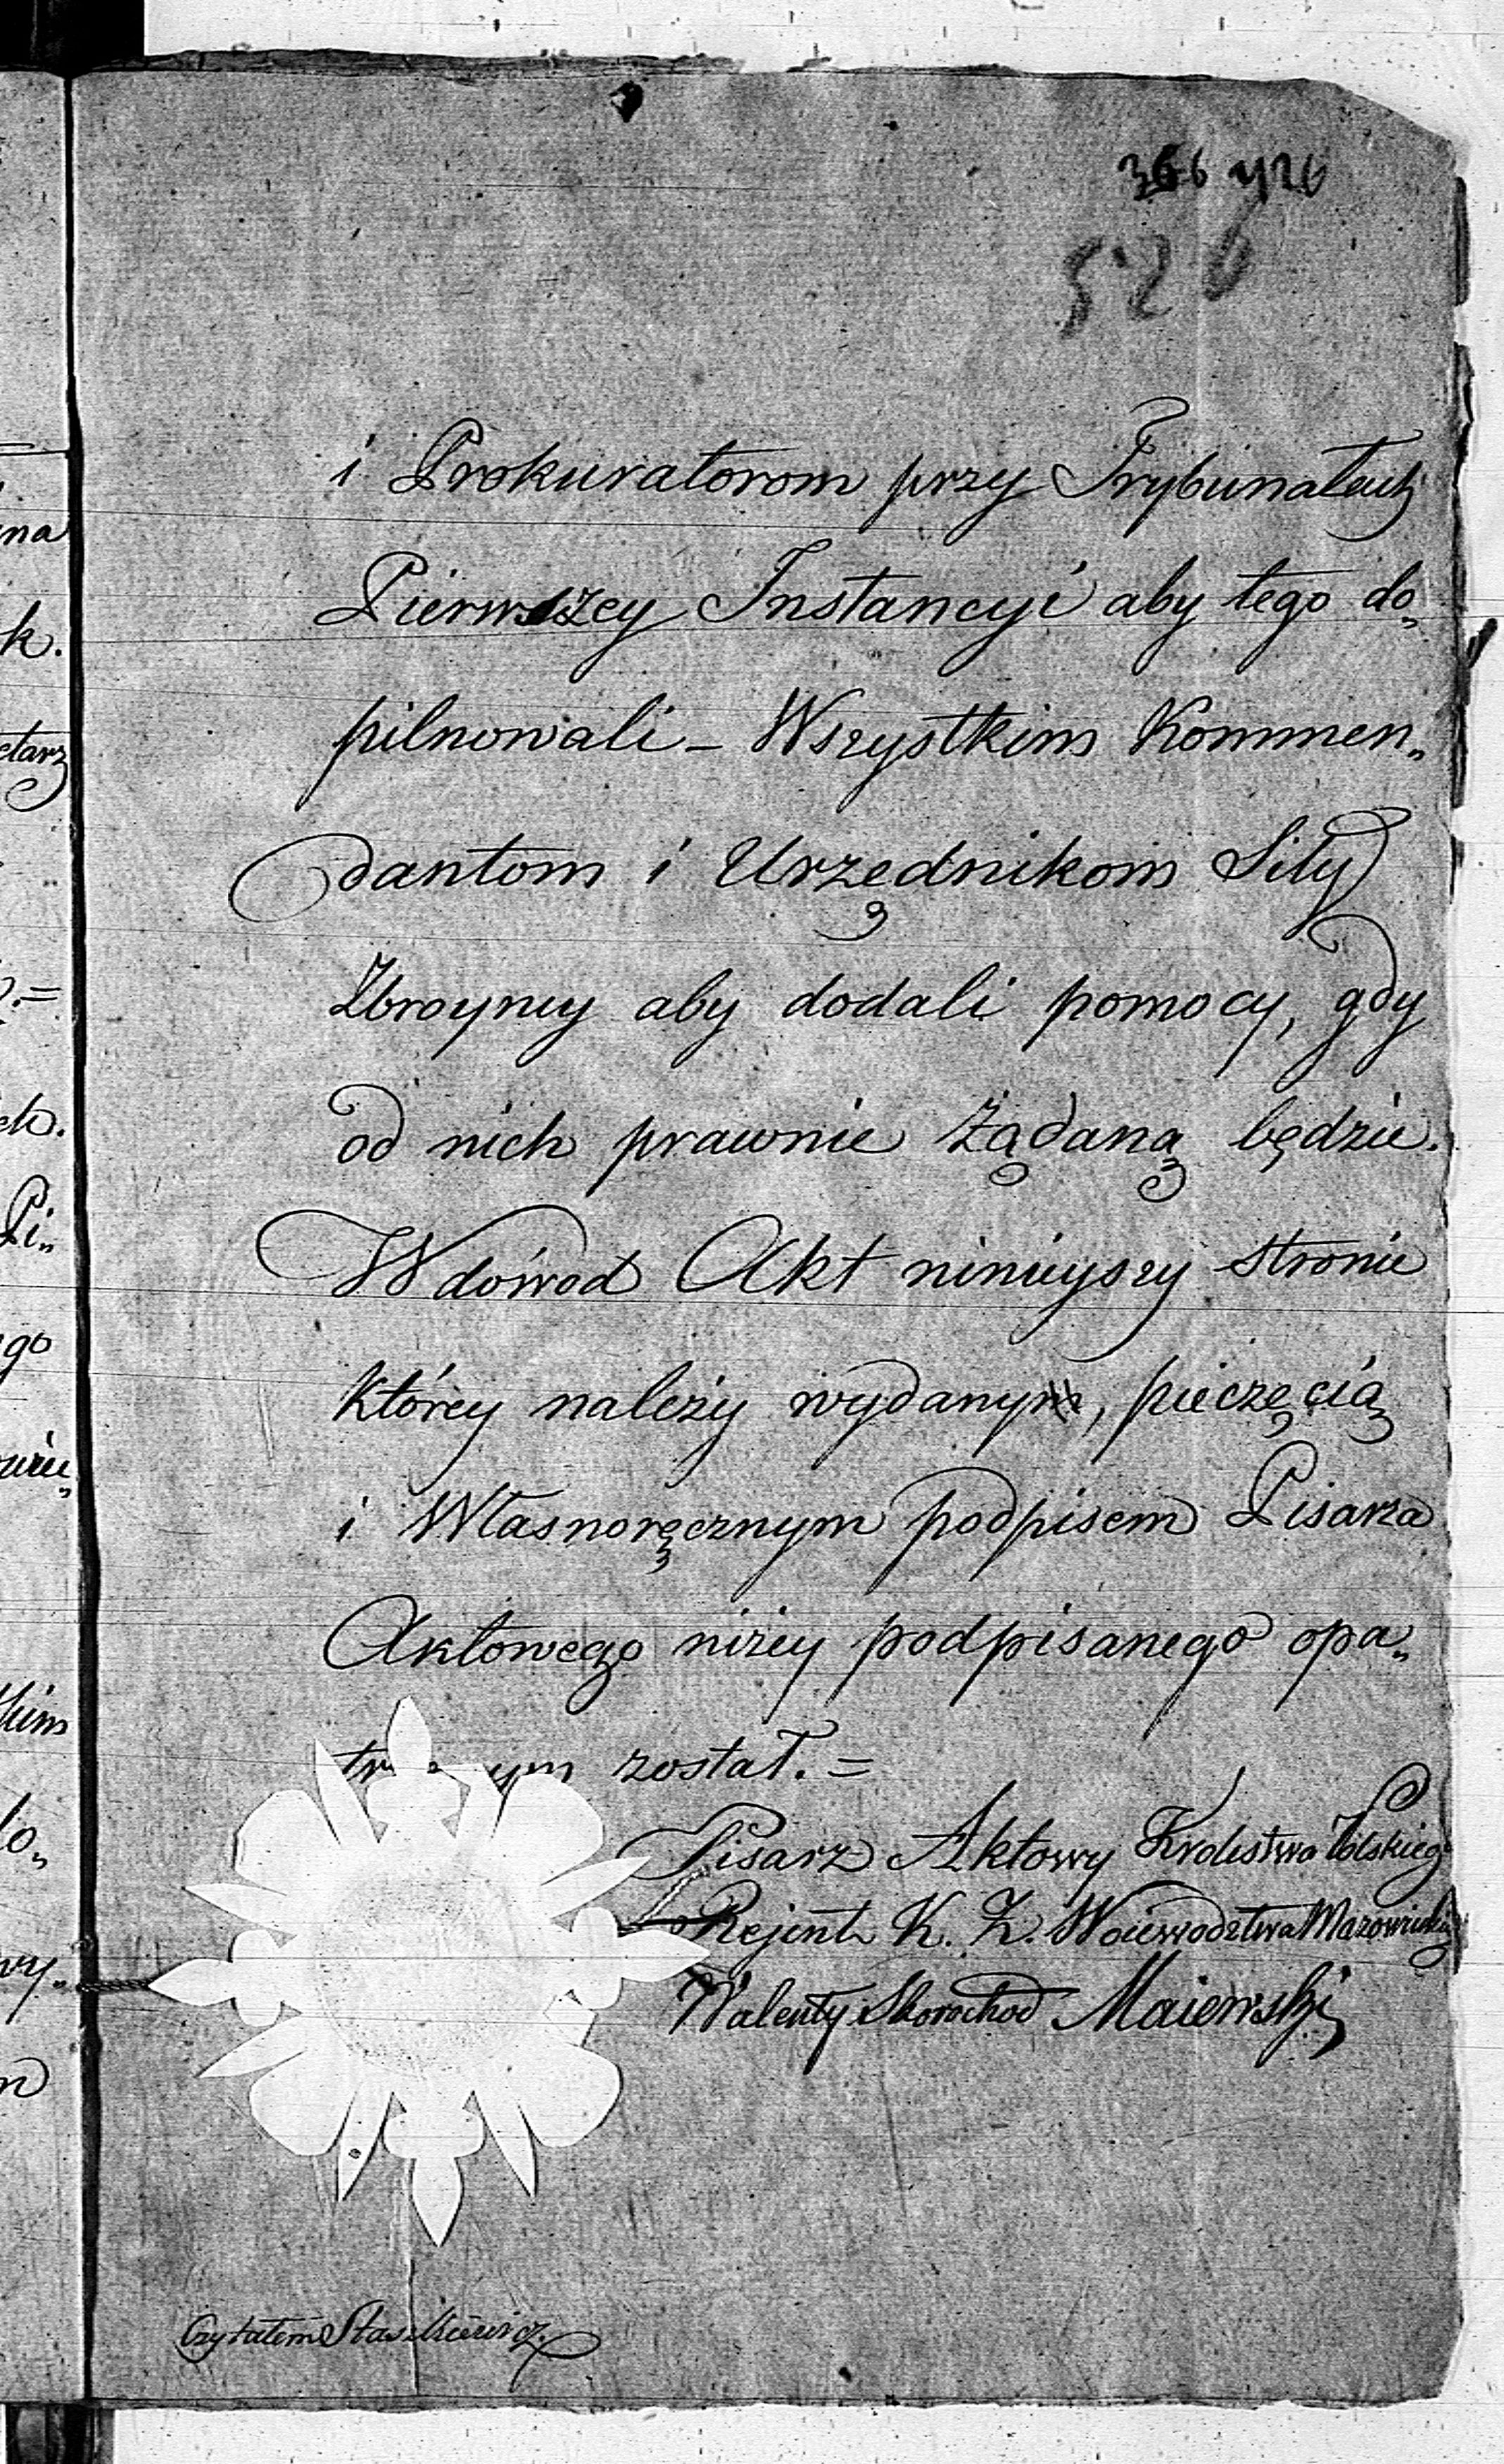 366 426
526
i Prokuratorom przy Trybunałach
Pierwszey Instancyi aby tego do„
pilnowali – Wszystkim Kommen„
dantom i Urzędnikom Siły
Zbroyney aby dodali pomocy, gdy
od nich prawnie żądaną będzie.
W dówod Akt ninieyszy stronie
którey należy wydanym, pieczęcią
i Własnoręcznym podpisem Pisarza
Aktowego niżey podpisanego opa„
tr ym został. =
Pisarz Aktowy Krolestwa Polskiego
Rejent K. Z. Woiewodztwa Mazowieckie
Walenty Skorochod Maiewski
Czytałem Staszkiewicz
na
k.
etarz
.=
ch.
Pi„
go
kim
do„
wy„
m